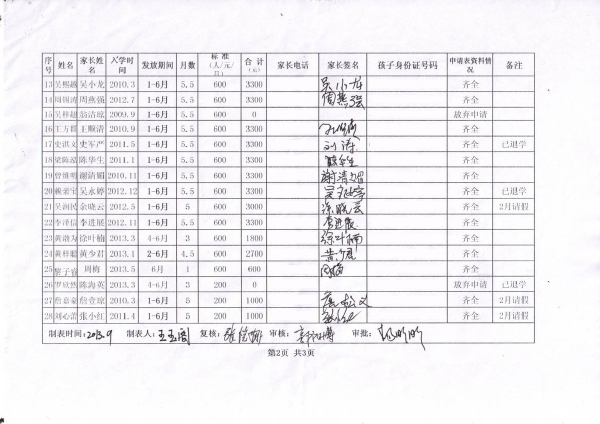 序号 姓名 家长姓名 入学时间 发放期间 月数 标准（人/元/月） 合计（元） 家长电话 家长签名 孩子身份证号码 申请表资料情况 备注
13 吴小龙 2010.3 1-6月 5.5 600 3300 吴小龙 齐全
14 周燕强 2012.7 1-6月 5.5 600 3300 周燕强 齐全
15 翁洁琼 2009.9 1-6月 5.5 600 0 放弃申请
16 王方群 王顺清 2010.9 1-6月 5.5 600 3300 齐全
17 史军严 2011.5 1-6月 5.5 600 3300 齐全 已退学
18 陈华生 2011.1 1-6月 5.5 600 3300 陈华生 齐全
19 曾维明 谢清媚 2010.11 1-6月 5.5 600 3300 谢清媚 齐全
20 吴永婷 2012.12 1-6月 5.5 600 3300 吴永婷 齐全 已退学
21 吴润民 余晓云 2012.5 1-6月 5 600 3000 余晓云 齐全 2月请假
22 李泽信 李进展 2012.11 1-6月 5.5 600 3300 李进展 齐全
23 黄渤为 徐叶楠 2013.3 4-6月 3 600 1800 徐叶楠 齐全
24 黄梓聪 黄少君 2013.1 2-6月 4.5 600 2700 齐全
25 黎子睿 周梅 2013.5 6月 1 600 600 周梅 齐全
26 罗欣然 陈海英 2013.3 4-6月 3 200 0 放弃申请 已退学
27 詹嘉豪 詹壹琼 2010.3 1-6月 5 200 1000 齐全 2月请假
28 刘心蕾 张小红 2011.4 1-6月 5 200 1000 齐全 2月请假
制表时间:2013.9 制表人: 复核: 审核: 审批:
第2页 共3页